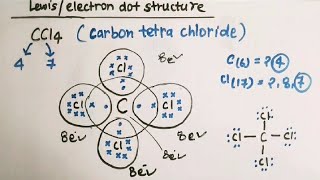 Lewis/electron dot structure
CCl4 (carbon tetra chloride)
4 7
C(6) = 2,4
Cl(17) = 2,8,7
Cl
8e⁻
Cl C Cl
8e⁻ 8e⁻
8e⁻
Cl
8e⁻
Cl
Cl-C-Cl
Cl